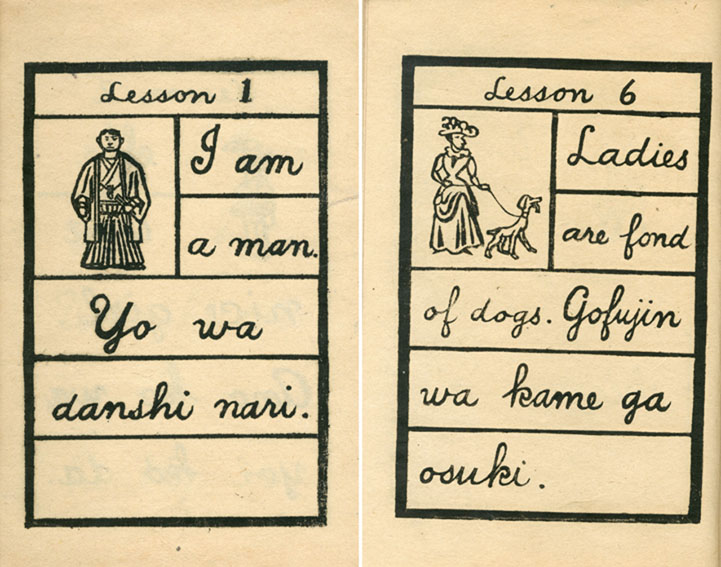 Lesson 1
I am
a man.
Yo wa
danshi nari.
Lesson 6
Ladies
are fond
of dogs. Gofujin
wa kame ga
osuki.